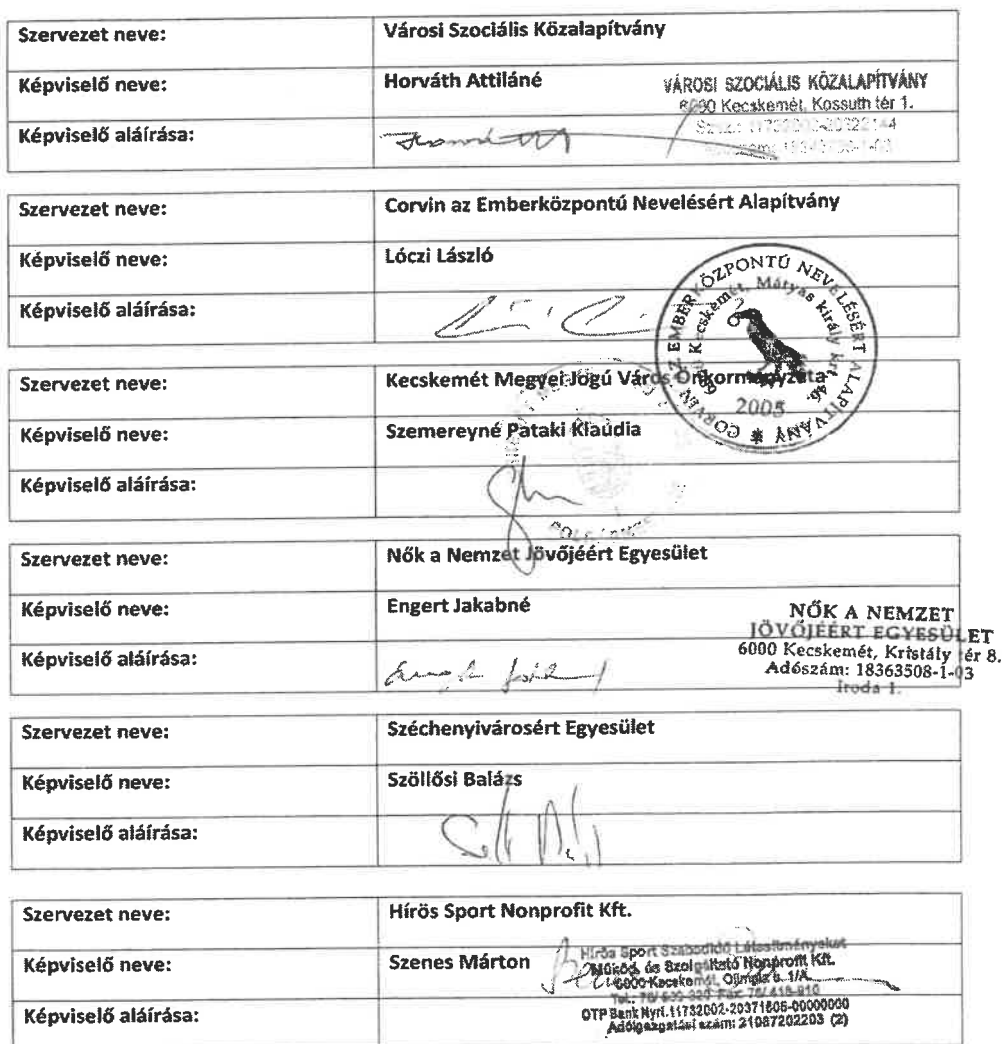 Szervezet neve: Városi Szociális Közalapítvány
Képviselő neve: Horváth Attiláné
VÁROSI SZOCIÁLIS KÖZALAPÍTVÁNY
6000 Kecskemét, Kossuth tér 1.
Képviselő aláírása:
Szervezet neve: Corvin az Emberközpontú Nevelésért Alapítvány
Képviselő neve: Lóczi László
Képviselő aláírása:
CORVIN AZ EMBERKÖZPONTÚ NEVELÉSÉRT ALAPÍTVÁNY
6000 Kecskemét, Mátyás király krt 46.
2005
Szervezet neve: Kecskemét Megyei Jogú Város Önkormányzata
Képviselő neve: Szemereyné Pataki Klaudia
Képviselő aláírása:
Szervezet neve: Nők a Nemzet Jövőjéért Egyesület
Képviselő neve: Engert Jakabné
Képviselő aláírása:
NŐK A NEMZET
JÖVŐJÉÉRT EGYESÜLET
6000 Kecskemét, Kristály tér 8.
Adószám: 18363508-1-03
Iroda 1.
Szervezet neve: Széchenyivárosért Egyesület
Képviselő neve: Szöllősi Balázs
Képviselő aláírása:
Szervezet neve: Hírös Sport Nonprofit Kft.
Képviselő neve: Szenes Márton
Hírös Sport Szabadidő Létesítményeket
Működ. és Szolgáltató Nonprofit Kft.
6000 Kecskemét, Olimpia u. 1/A
OTP Bank Nyrt. 11732002-20371606-00000000
Adóigazgatási szám: 21087202203 (2)
Képviselő aláírása: